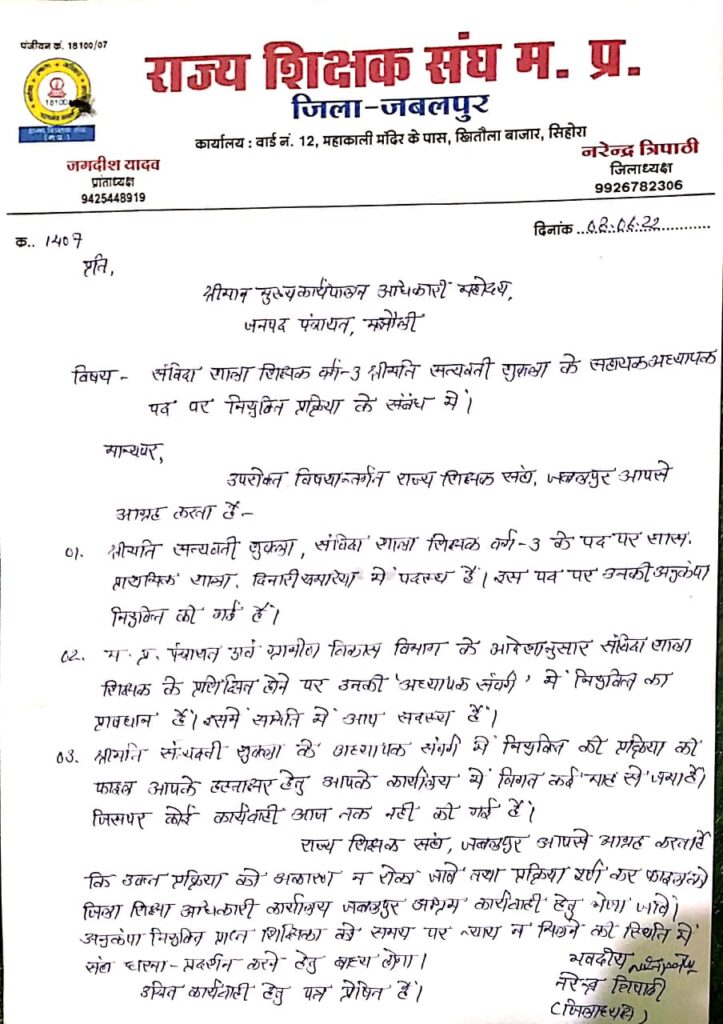 पंजीयन कं. 18100/07
राज्य शिक्षक संघ म. प्र.
जिला-जबलपुर
18100
कार्यालय : वार्ड नं. 12, महाकाली मंदिर के पास, खितौला बाजार, सिहोरा
जगदीश यादव
प्रांताध्यक्ष
9425448919
नरेन्द्र त्रिपाठी
जिलाध्यक्ष
9926782306
क.. 1407
दिनांक ..02.06.22............
प्रति,
श्रीमान मुख्यकार्यपालन अधिकारी महोदय,
जनपद पंचायत, मझौली
विषय - संविदा शाला शिक्षक वर्ग-3 श्रीमति सत्यवती शुक्ला के सहायक अध्यापक
पद पर नियुक्ति प्रक्रिया के संबंध में।
मान्यवर,
उपरोक्त विषयान्तर्गत राज्य शिक्षक संघ, जबलपुर आपसे
आग्रह करता है -
01. श्रीमति सत्यवती शुक्ला, संविदा शाला शिक्षक वर्ग-3 के पद पर शास.
प्राथमिक शाला, में पदस्थ हैं। इस पद पर उनकी अनुकंपा
नियुक्ति की गई है।
02. म. प्र. पंचायत एवं ग्रामीण विकास विभाग के आदेशानुसार संविदा शाला
शिक्षक के प्रशिक्षित होने पर उनकी 'अध्यापक संवर्ग' में नियुक्ति का
प्रावधान है। इसमें समिति में आप सदस्य हैं।
03. श्रीमति सत्यवती शुक्ला के अध्यापक संवर्ग में नियुक्ति की प्रक्रिया की
फाइल आपके हस्ताक्षर हेतु आपके कार्यालय में विगत कई माह से जमा है।
जिसपर कोई कार्यवाही आज तक नहीं की गई है।
राज्य शिक्षक संघ, जबलपुर आपसे आग्रह करता है
कि उक्त प्रक्रिया को अकारण न रोका जावे तथा प्रक्रिया पूर्ण कर फाइल को
जिला शिक्षा अधिकारी कार्यालय जबलपुर अग्रिम कार्यवाही हेतु भेजा जावे।
अनुकंपा नियुक्ति प्राप्त शिक्षिका को समय पर न्याय न मिलने की स्थिति में
संघ धरना-प्रदर्शन करने हेतु बाध्य होगा।
भवदीय
उचित कार्यवाही हेतु पत्र प्रेषित है।
नरेन्द्र त्रिपाठी
(जिलाध्यक्ष)